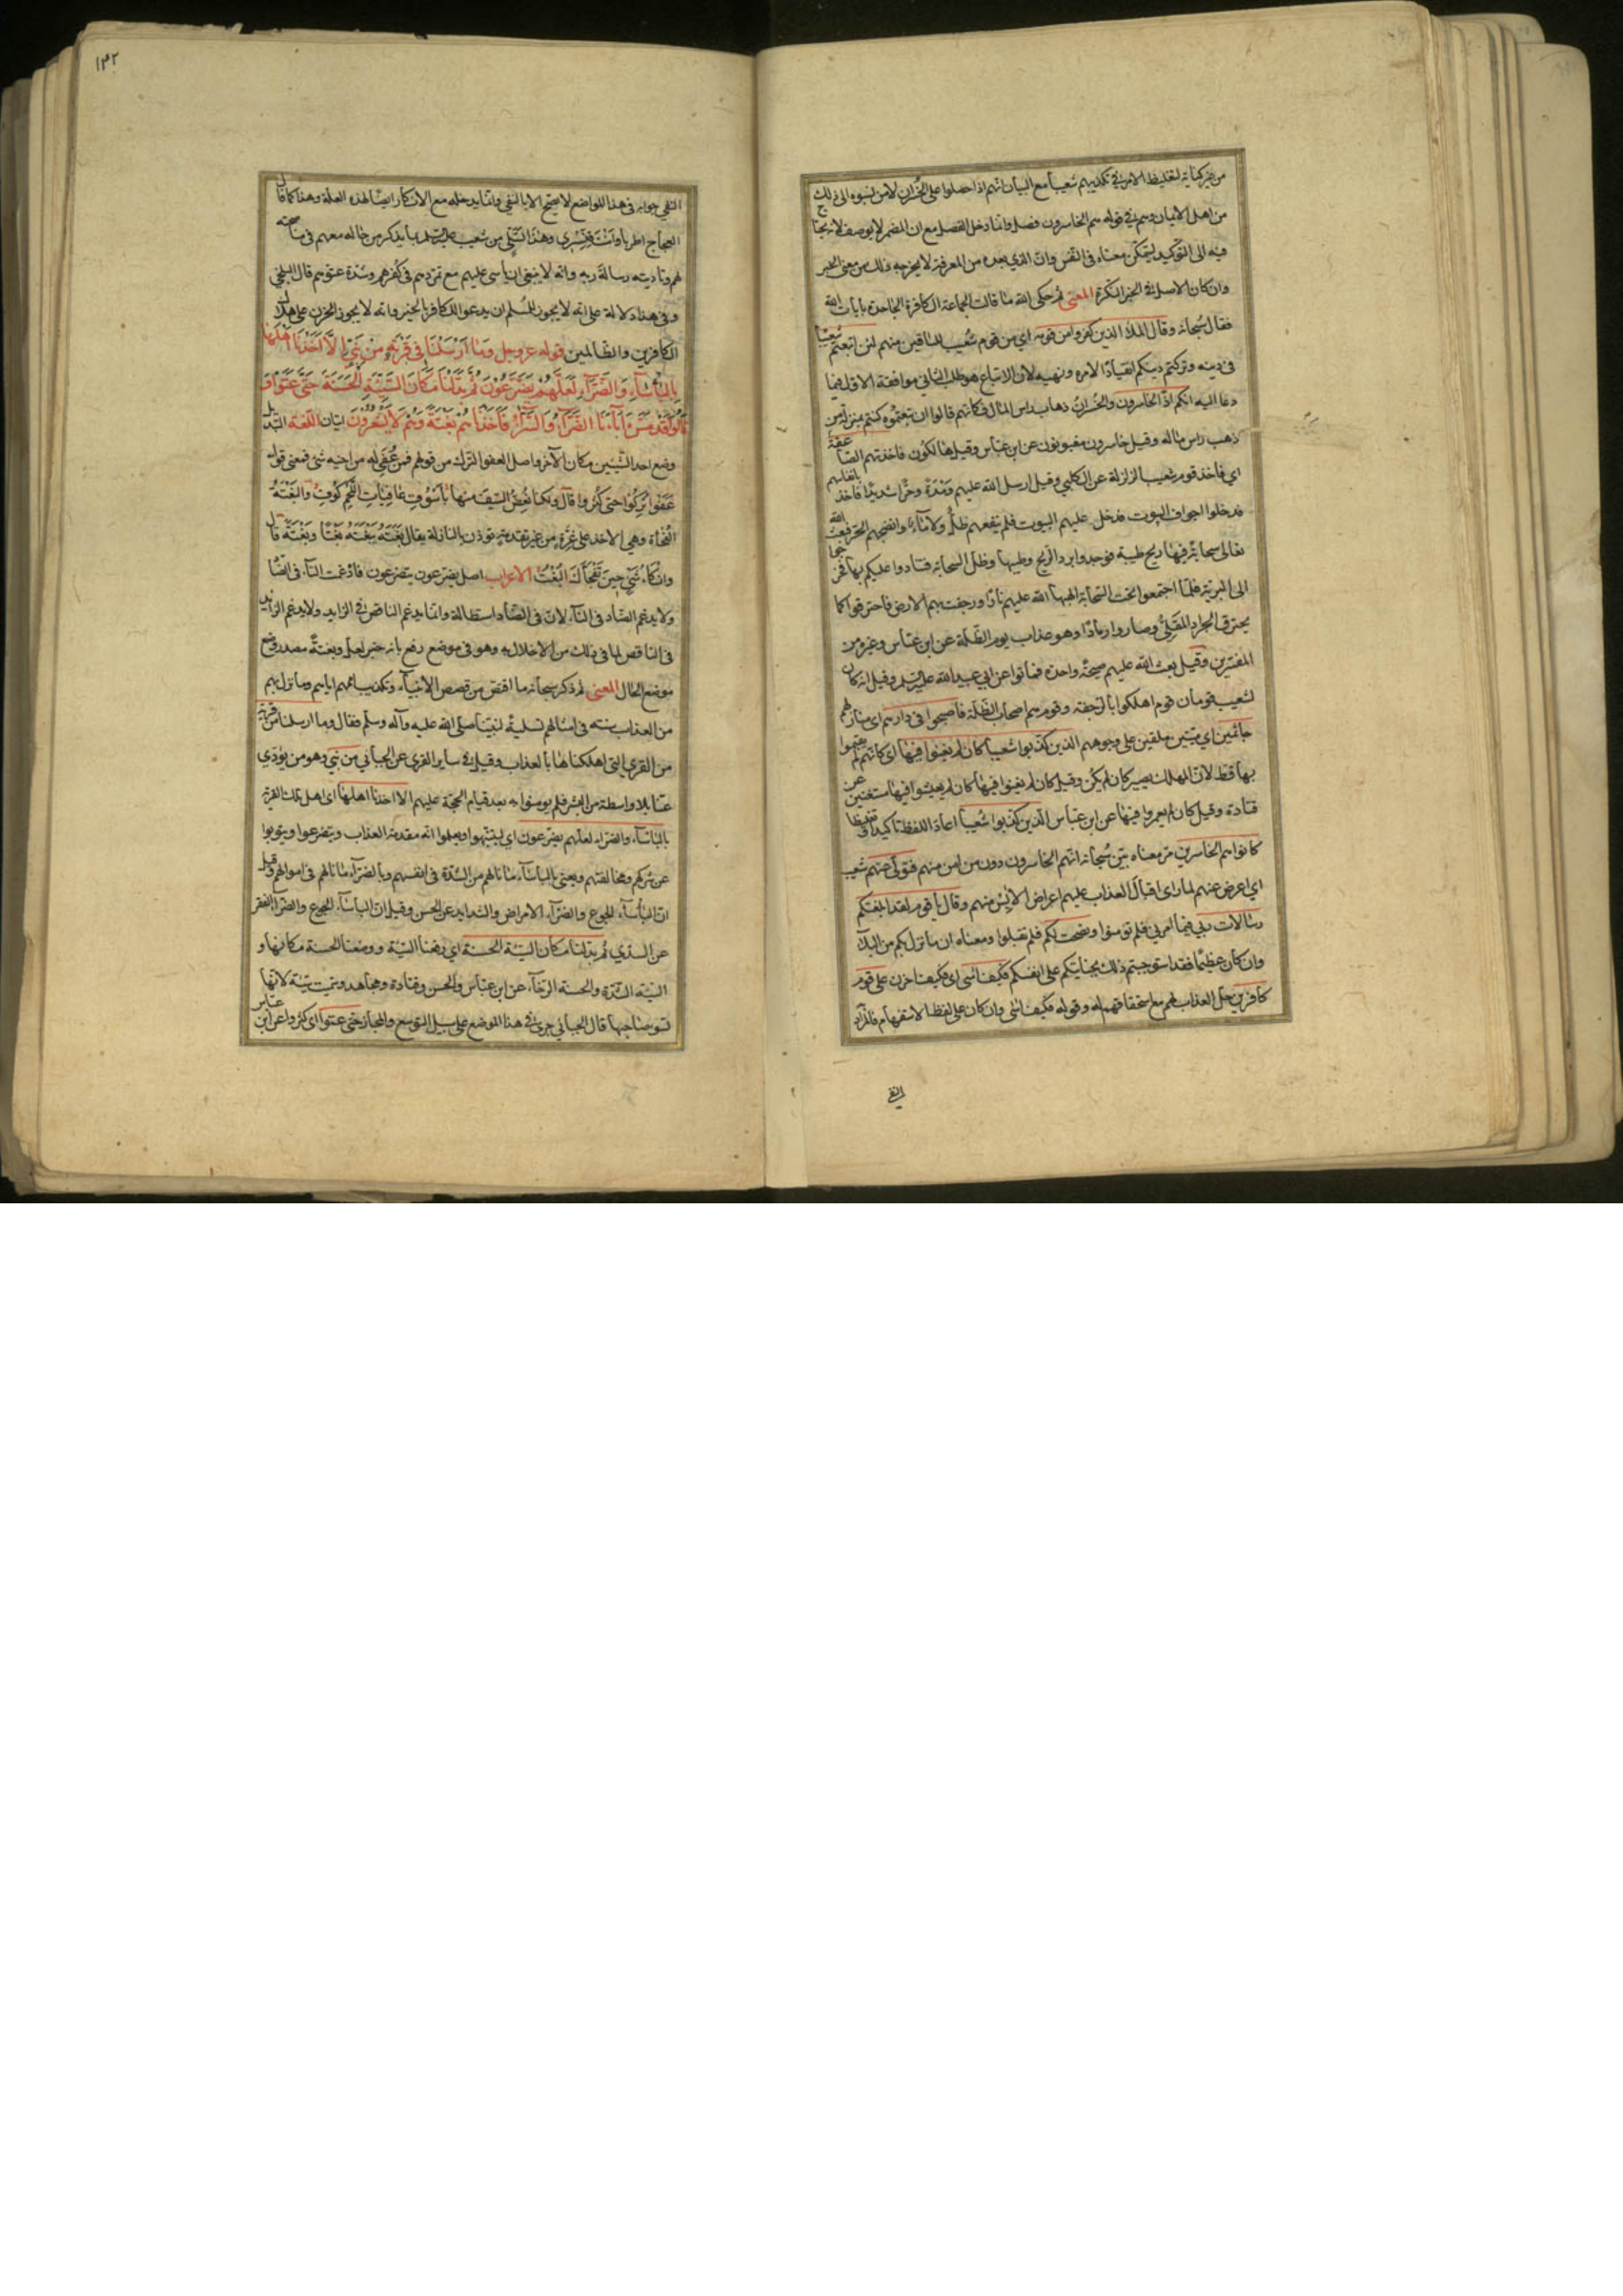 من غير كناية لتغليظ الامر في تكذيبهم شعيبا مع البيان انهم اذا حصلوا على الخسران لا من نسبوه الى ذلك
من اهل الايمان وهم في قوله هم الخاسرون فصل وانما دخل الفصل مع ان المضمر لا يوصف لانه يحتاج
فيه الى التوكيد ليتمكن معناه في النفس وان الذي بعده من المعرفة لا يخرجه ذلك من معنى الخبر
وان كان الاصل في الخبر النكرة المعنى ثم حكى الله ما قالت الجماعة الكافرة الجاحدة بايات الله
فقال سبحانه وقال الملأ الذين كفروا من قومه اي من قوم شعيب للباقين منهم لئن اتبعتم شعيبا
في دينه وتركتم دينكم انقيادا لامره ونهيه لان الاتباع هو طلب الثاني موافقة الاول فيما
دعا اليه انكم اذا لخاسرون والخسران ذهاب راس المال فكانهم قالوا ان تبعتموه كنتم بمنزلة من
ذهب راس ماله وقيل خاسرون مغبونون عن ابن عباس وقيل هالكون فاخذتهم الصاعقة
اي فاخذ قوم شعيب الزلزلة عن الكلبي وقيل ارسل الله عليهم وقدة وحرا شديدا فاخذ بانفاسهم
فدخلوا اجواف البيوت فدخل عليهم البيوت فلم ينفعهم ظل ولا ماء وانضجهم الحر فبعث الله
تعالى سحابة فيها ريح طيبة فوجدوا برد الريح وطيبها وظل السحابة فتنادوا عليكم بها فخرجوا
الى البرية فلما اجتمعوا تحت السحابة الهبها الله عليهم نارا ورجفت بهم الارض فاحترقوا كما
يحترق الجراد المقلي وصاروا رمادا وهو عذاب يوم الظلة عن ابن عباس وغيره من
المفسرين وقيل بعث الله عليهم صيحة واحدة فماتوا عن ابي عبد الله عليه السلم وقيل انه كان
لشعيب قومان قوم اهلكوا بالرجفة وقوم هم اصحاب الظلة فاصبحوا في دارهم اي منازلهم
جاثمين اي ميتين ملقين على وجوههم الذين كذبوا شعيبا كان لم يغنوا فيها اي كانهم لم يقيموا
بها قط لان المهلك يصير كان لم يكن وقيل كان لم يغنوا فيها كان لم يعيشوا فيها مستغنين عن
قتادة وقيل كان لم يعمروا فيها عن ابن عباس الذين كذبوا شعيبا اعاد اللفظ تاكيدا وتغليظا
كانوا هم الخاسرين مر معناه بين سبحانه انهم الخاسرون دون من امن منهم فتولى عنهم شعيب
اي اعرض عنهم لما راى اقبال العذاب عليهم اعراض الايس منهم وقال يا قوم لقد ابلغتكم
رسالات ربي فيما امرني فلم تومنوا ونصحت لكم فلم تقبلوا ومعناه ان ما نزل بكم من البلاء
وان كان عظيما فقد استوجبتم ذلك بجنايتكم على انفسكم فكيف اسى اي فكيف احزن على قوم
كافرين حل العذاب بهم مع استحقاقهم له وقوله فكيف اسى وان كان على لفظ الاستفهام فالمراد
النفي
١٣٢
النفي جوابه في هذا المواضع لا يصح الا بالنفي وانما يدخله مع الانكار ايضا لهذه العلة وهذا كما قال
العجاج اطربا وانت قنسري وهذا تسلي من شعيب عليه السلم بما يذكر من حاله معهم في مناصحته
لهم وتاديته رسالة ربه وانه لا ينبغي ان ياسى عليهم مع تمردهم في كفرهم وشدة عتوهم قال البلخي
وفي هذا دلالة على انه لا يجوز للمسلم ان يدعو للكافر بالخير وانه لا يجوز الحزن على هلاك
الكافرين والظالمين قوله عز وجل وَمَا اَرْسَلْنَا فِي قَرْيَةٍ مِنْ نَبِيٍّ اِلَّا اَخَذْنَا اَهْلَهَا
بِالْبَأْسَاءِ وَالضَّرَّاءِ لَعَلَّهُمْ يَضَّرَّعُونَ ثُمَّ بَدَّلْنَا مَكَانَ السَّيِّئَةِ الْحَسَنَةَ حَتَّى عَفَوْا وَ
قَالُوا قَدْ مَسَّ آبَاءَنَا الضَّرَّاءُ وَالسَّرَّاءُ فَاَخَذْنَاهُمْ بَغْتَةً وَهُمْ لَا يَشْعُرُونَ ايتان اللغة التبديل
وضع احد الشيئين مكان الآخر واصل العفو الترك من قولهم فمن عفي له من اخيه شئ فمعنى قوله
عفوا تركوا حتى كثروا قال ولكنا نعض السيف منها باسوق عافيات اللحم كوم والبغتة
الفجأة وهي الاخذ على غرة من غير تقدمة تؤذن بالنازلة يقال بغته يبغته بغتا وبغتة قال
وانكأ شئ حين تفجأك البغت الاعراب اصل يضرعون يتضرعون فادغمت التاء في الضاد
ولا يدغم الضاد في التاء لان في الضاد استطالة وانما يدغم الناقص في الزايد ولا يدغم الزايد
في الناقص لما في ذلك من الاخلال به وهو في موضع رفع بانه خبر لعل وبغتة مصدر وضع
موضع الحال المعنى ثم ذكر سبحانه ما اقتص من قصص الانبياء وتكذيب اممهم اياهم وما نزل بهم
من العذاب سنته في امثالهم تسلية لنبينا صلى الله عليه وآله وسلم فقال وما ارسلنا في قرية
من القرى التي اهلكناها بالعذاب وقيل في ساير القرى عن الجبائي من نبي وهو من يؤدي
عنا بلا واسطة من البشر فلم يومنوا به بعد قيام الحجة عليهم الا اخذنا اهلها اي اهل تلك القرية
بالباساء والضراء لعلهم يضرعون اي ليتنبهوا ويعلموا انه مقدمة العذاب ويتضرعوا ويتوبوا
عن شركهم ومخالفتهم ويعني بالباساء ما نالهم من الشدة في انفسهم وبالضراء ما نالهم في اموالهم وقيل
ان البأساء الجوع والضراء الامراض والشدايد عن الحسن وقيل ان الباساء الجوع والضراء الفقر
عن السدي ثم بدلنا مكان السيئة الحسنة اي رفعنا السيئة ووضعنا الحسنة مكانها و
السيئة الشدة والحسنة الرخاء عن ابن عباس والحسن وقتادة ومجاهد وسميت سيئة لانها
تسوء صاحبها قال الجبائي جرى في هذا الموضع على سبيل التوسع والمجاز حتى عفوا اي كثروا عن ابن عباس